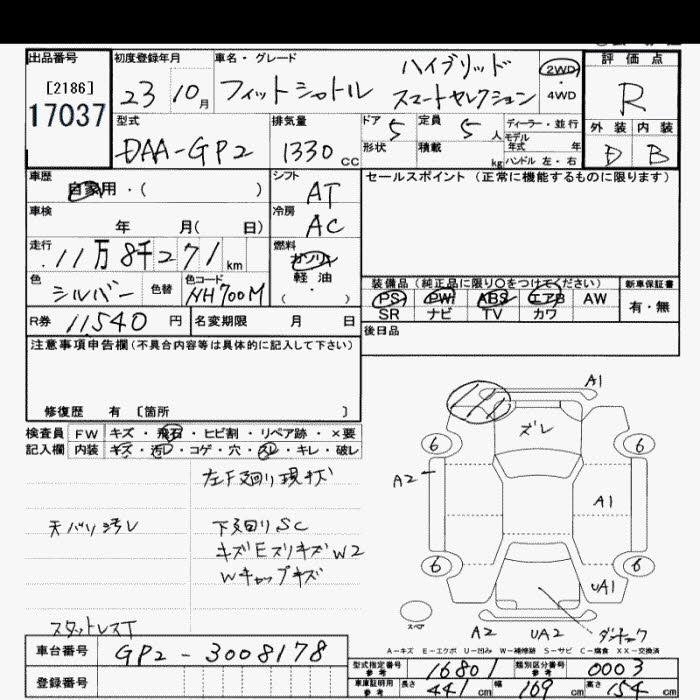 出品番号 初度登録年月 車名・グレード 評価点
[2186]
17037
23 10月 フィットシャトル ハイブリッド
スマートセレクション
2WD
・
4WD
R
外装 内装
D B
型式 排気量 ドア 定員 ディーラー・並行
DAA-GP2 1330cc 5 5人 モデル年式 年
形状 積載 kg ハンドル 左・右
車歴 シフト セールスポイント (正常に機能するものに限ります)
自家用・( ) AT
車検 冷房
年 月( 日) AC
走行 燃料
11万8千271km ガソリン
軽油
・( )
色 色替 色コード
シルバー NH700M
装備品 (純正品に限り○をつけてください) 新車保証書
PS PW ABS エアB AW 有・無
SR ナビ TV カワ
R券 11540円 名変期限 月 日
後日品
注意事項申告欄(不具合内容等は具体的に記入して下さい)
修復歴 有 〔箇所 〕
検査員 FW キズ・飛石・ヒビ割・リペア跡・×要
記入欄 内装 キズ・汚レ・コゲ・穴・スレ・キレ・破レ
左下廻り現キズ
天バリ汚レ 下廻りSC
キズEスリキズW2
Wキャップキズ
スタットレスT
A1
ズレ
6 6
A2
A1
6 6
UA1
スペア
A2 UA2
A-キズ E-エクボ U-凹み W-補修跡 S-サビ C-腐食 XX-交換済
車台番号 GP2-3008178
登録番号
型式指定番号 参考 16801 類別区分番号 参考 0003
車庫証明用 参考 長さ 441cm 幅 169cm 高さ 154cm